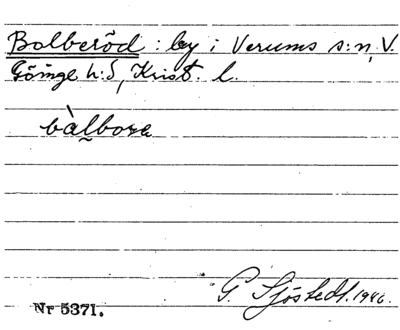 Bolberöd : by i Verums s:n, V.
Göinge h:d, Krist. l.
bàlbora
G. Sjöstedt. 1946.
Nr 5371.